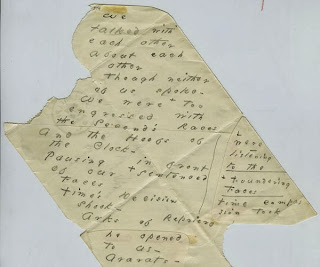 We
talked with
each other
about each
other
though neither
of us spoke-
We were + too
engrossed with
the Second's Races
And the Hoofs of
the Clock-
Pausing in front
of our + sentenced
Faces
time's Decision
shook-
Arks of Reprieve
he opened
to us-
Ararats-
+ were
listening
to the
+ foundering
Faces
time compas
sion took